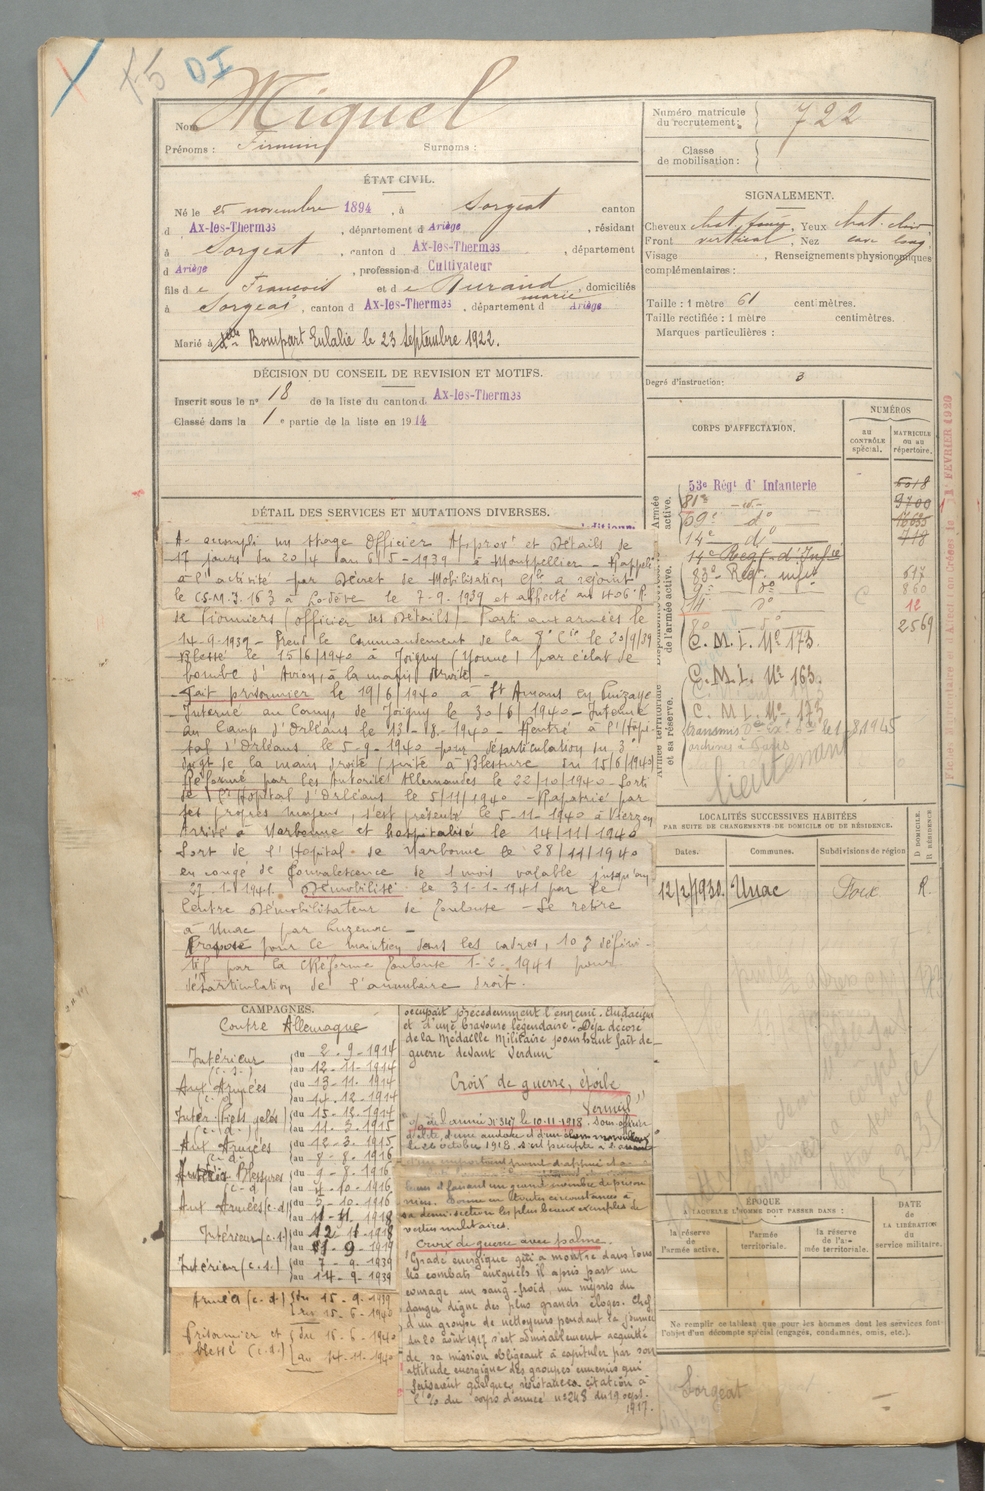 +5 DI
Nom Miquel
Prénoms : Firmin Surnoms :
ÉTAT CIVIL.
Né le 25 novembre 1894, à Sorgeat canton
d Ax-les-Thermes, département d Ariège, résidant
à Sorgeat, canton d Ax-les-Thermes, département
d Ariège, profession d Cultivateur
fils de François et de Durand marie, domiciliés
à Sorgeat, canton d Ax-les-Thermes, département d Ariège
Marié à Bompart Eulalie le 23 Septembre 1922.
DÉCISION DU CONSEIL DE REVISION ET MOTIFS.
Inscrit sous le n° 18 de la liste du canton d. Ax-les-Thermes
Classé dans la 1e partie de la liste en 1914
DÉTAIL DES SERVICES ET MUTATIONS DIVERSES.
A accompli un stage Officier Approvt et Détails de
17 jours du 20/4 au 6/5-1939 à Montpellier – Rappelé
à l'activité par Décret de Mobilisation Gle a rejoint
le C.M.I. 163 à Lodève le 7-9-1939 et affecté au 406e R.
de Pionniers (officier des Détails) – Parti aux armées le
14-9-1939 – Prend le Commandement de la 8e Cie le 20/9/39
Blessé le 15/6/1940 à Joigny (Yonne) par éclat de
bombe d'Avion, à la main droite –
Fait prisonnier le 19/6/1940 à St Amans en Puizaye
Interné au Camp de Joigny le 30/6/1940 – Interné
au Camp d'Orléans le 13-8-1940 – Rentré à l'Hôpi-
tal d'Orléans le 5-9-1940 pour désarticulation du 3e
doigt de la main droite (suite à Blessure du 15/6/1940)
Réformé par les Autorités Allemandes le 22/10/1940 – Sorti
de l'Hôpital d'Orléans le 5/11/1940 – Rapatrié par
ses propres moyens, s'est présenté le 5-11-1940 à Vierzon
Arrivé à Narbonne et hospitalisé le 14/11/1940
Sort de l'Hôpital de Narbonne le 28/11/1940
en congé de Convalescence de 1 mois valable jusqu'au
27-1-1941. Démobilisé le 31-1-1941 par le
Centre Démobilisateur de Toulouse – Se retire
à Unac par Luzenac –
Proposé pour le maintien dans les cadres, 10% défini-
tif par la CRéforme Toulouse 1-2-1941 pour
désarticulation de l'annulaire droit.
CAMPAGNES.
Contre Allemagne
Intérieur (c.s.) du 2-9-1914
au 12-11-1914
Aux Armées (c.d) du 13-11-1914
au 14-12-1914
Inter. Pieds gelés (c.d.) du 15-12-1914
au 11-3-1915
Aux Armées (c.d.) du 12-3-1915
au 8-8-1916
Intérieur Blessures (c.d) du 9-8-1916
au 4-10-1916
Aux Armées (c.d) du 5-10-1916
au 11-11-1918
Intérieur (c.s) du 12-11-1918
au 9-1919
Intérieur (c.s.) du 7-9-1939
au 14-9-1939
Armées (c.d) du 15-9-1939
au 15-6-1940
Prisonnier et blessé (c.d.) du 16-6-1940
au 14-11-1940
occupait précédemment l'ennemi. Audacieux
et d'une bravoure légendaire. Déja décoré
de la Médaille Militaire pour haut fait de
guerre devant Verdun
Croix de guerre, étoile
Vermeil"
de l'armée N° 347 le 10-11-1918, Sous-officier
d'élite, d'une audace et d'un élan merveilleux
le 26 octobre 1918. S'est précipité à l'assaut
d'un important point d'appui
et faisant un grand nombre de prison-
niers. Donne en toutes circonstances à
sa demi-section les plus beaux exemples de
vertus militaires.
Croix de guerre avec palme.
"Gradé énergique qui a montré dans tous
les combats auxquels il a pris part un
courage un sang-froid, un mépris du
danger digne des plus grands éloges. Chef
d'un groupe de nettoyeurs pendant la journée
du 20 août 1917 s'est admirablement acquitté
de sa mission obligeant à capituler par son
attitude énergique des groupes ennemis qui
faisaient quelques résistances. Citation à
l'O. du corps d'armée n° 248 du 19 sept.
1917.
Numéro matricule du recrutement : 722
Classe de mobilisation :
SIGNALEMENT.
Cheveux chat. foncé, Yeux chat. clair
Front vertical, Nez cave long
Visage , Renseignements physionomiques
complémentaires :
Taille : 1 mètre 61 centimètres.
Taille rectifiée : 1 mètre centimètres.
Marques particulières :
Degré d'instruction : 3
CORPS D'AFFECTATION.
NUMÉROS
au CONTRÔLE spécial.
MATRICULE ou au répertoire.
Armée active.
53e Régt d'Infanterie 6018
81e –d°– 9700
59e d° 16635
14e d° 718
Disponibilité et réserve de l'armée active.
14e Regt d'Infie
83e Regt infie 617
9e d° 860
14 d° 12
80 d° 2569
C.M.I. N° 173.
Armée territoriale et sa réserve.
C.M.I. N° 163.
C.M.I. N° 173
le 1.8.1945
lieutenant
LOCALITÉS SUCCESSIVES HABITÉES
PAR SUITE DE CHANGEMENTS DE DOMICILE OU DE RÉSIDENCE.
Dates. Communes. Subdivisions de région D. DOMICILE. R. RÉSIDENCE
12/2/1930. Unac Foix R.
ÉPOQUE
À LAQUELLE L'HOMME DOIT PASSER DANS :
DATE DE LA LIBÉRATION DU service militaire.
la réserve de l'armée active. l'armée territoriale. la réserve de l'armée territoriale.
Ne remplir ce tableau que pour les hommes dont les services font
l'objet d'un décompte spécial (engagés, condamnés, omis, etc.).
Sorgeat